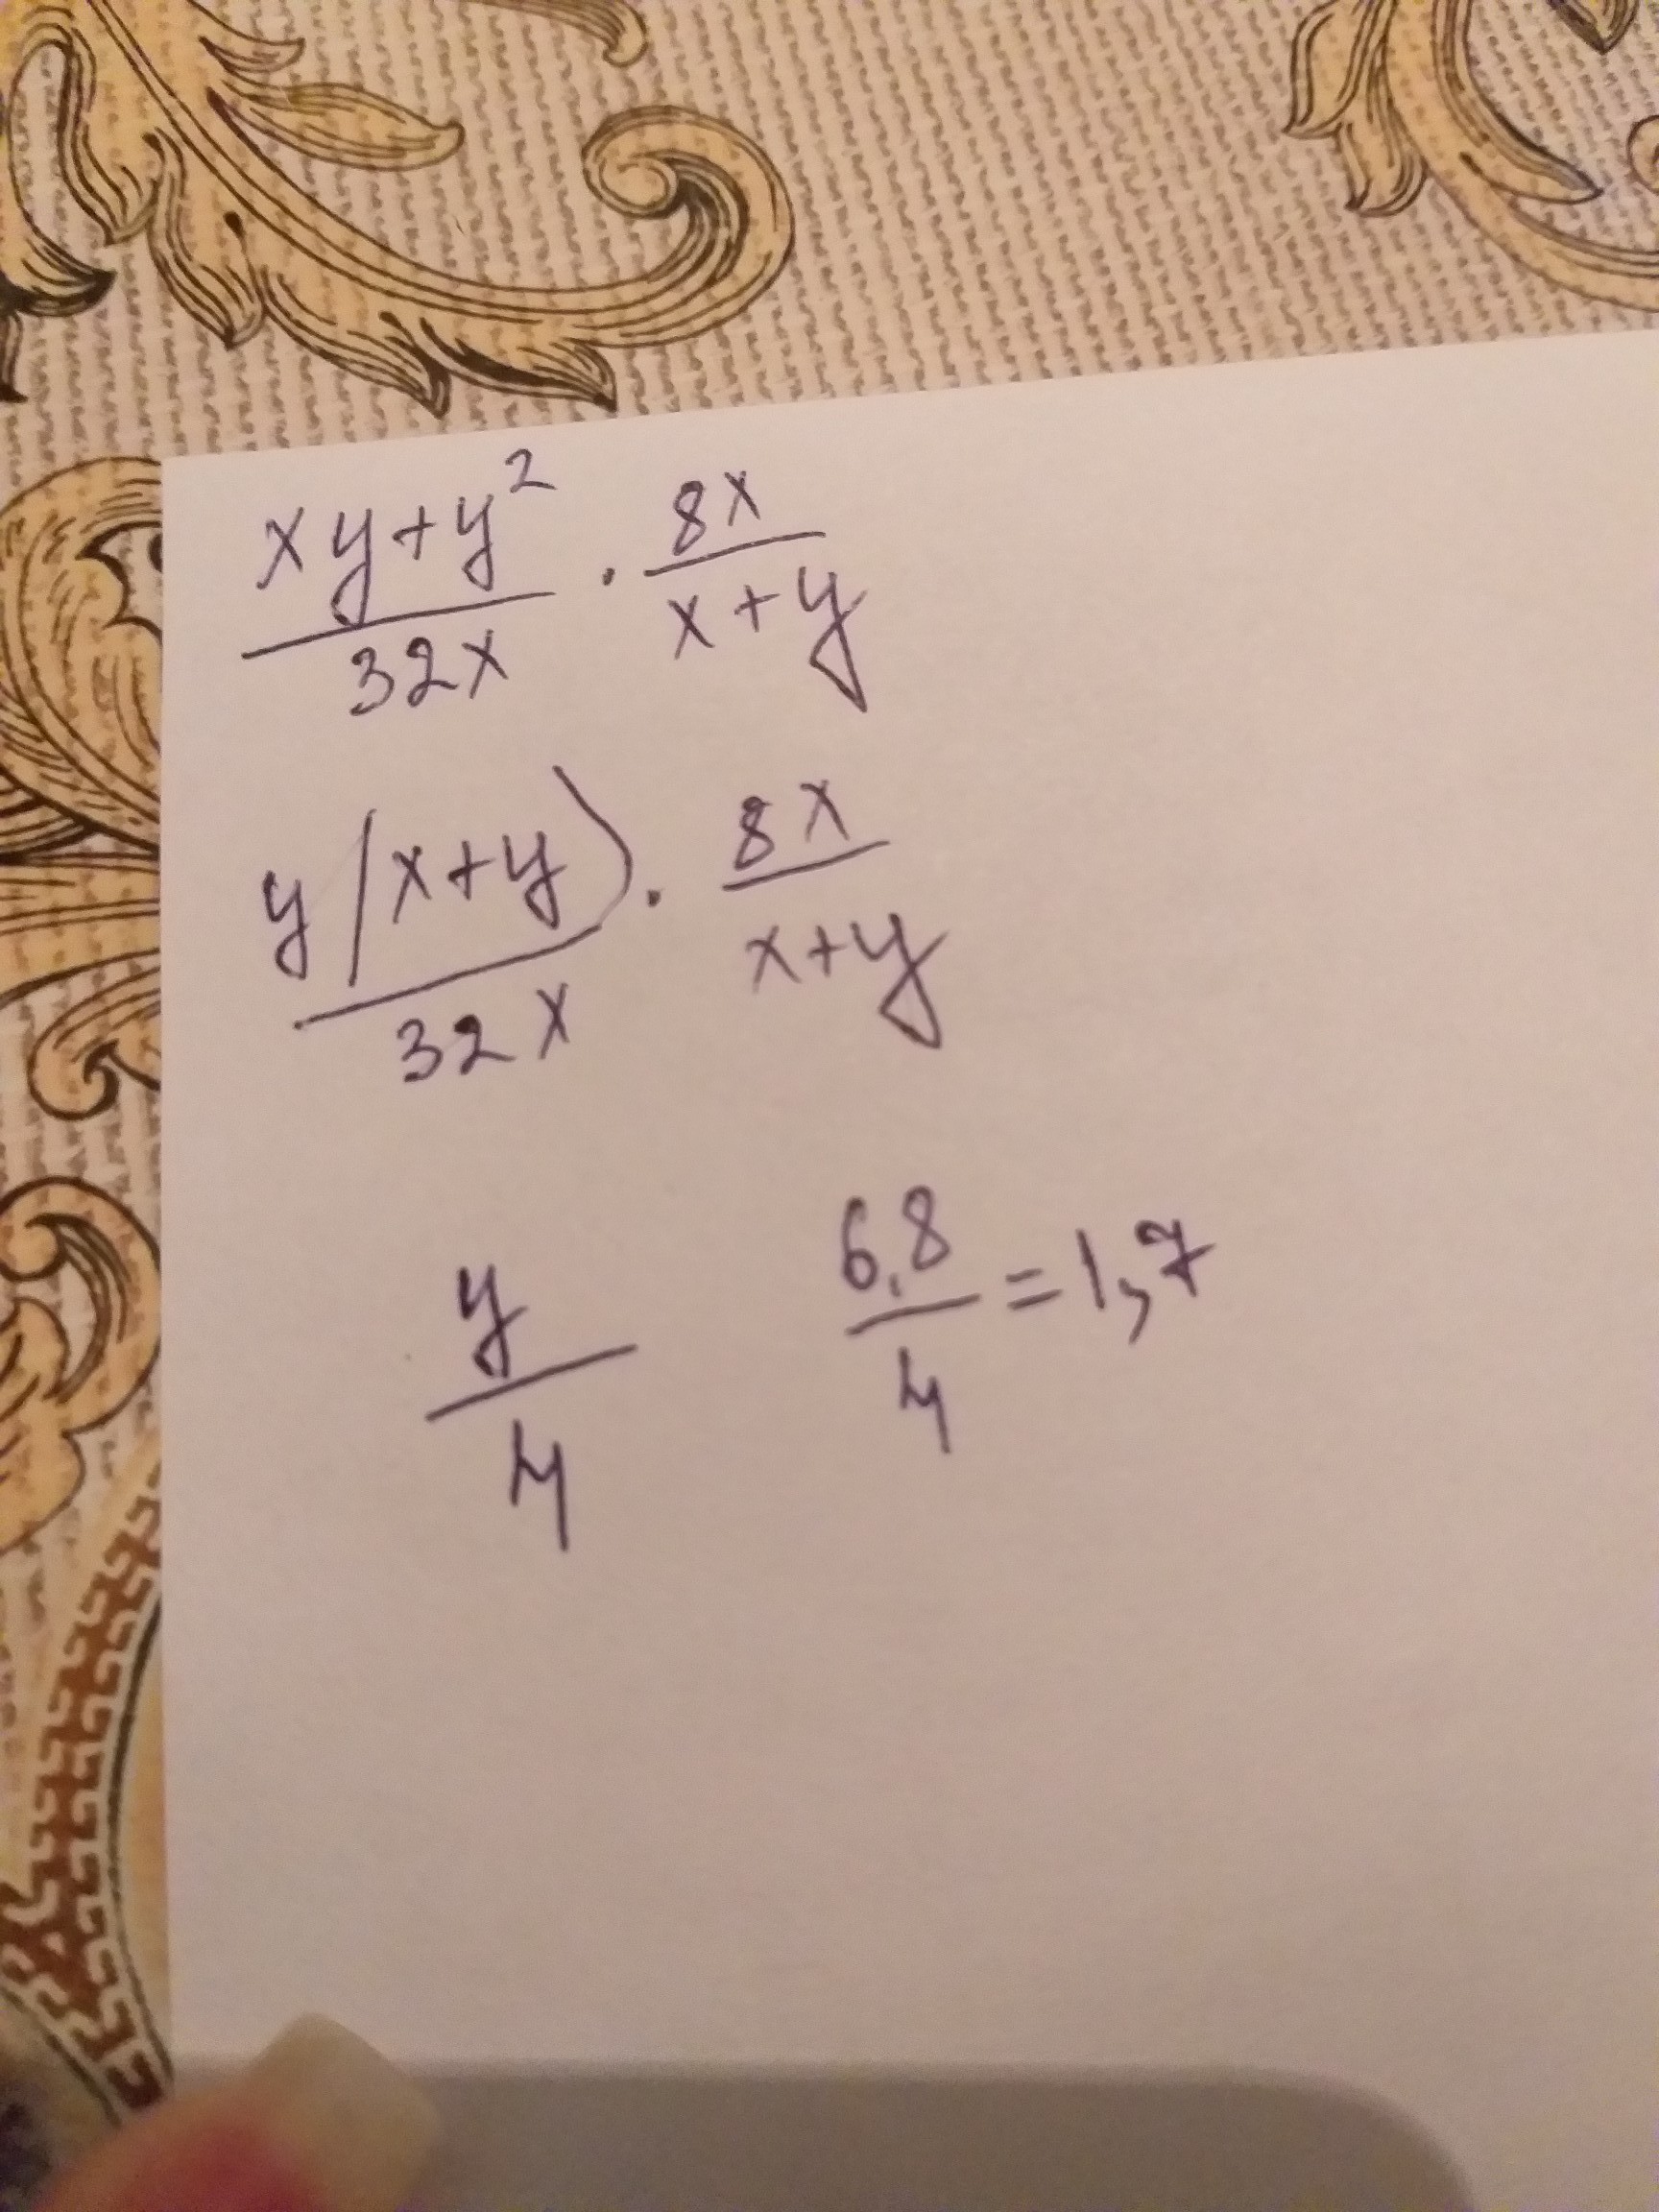 xy+y² / 32x · 8x / x+y
y(x+y) / 32x · 8x / x+y
y / 4    6,8 / 4 = 1,7